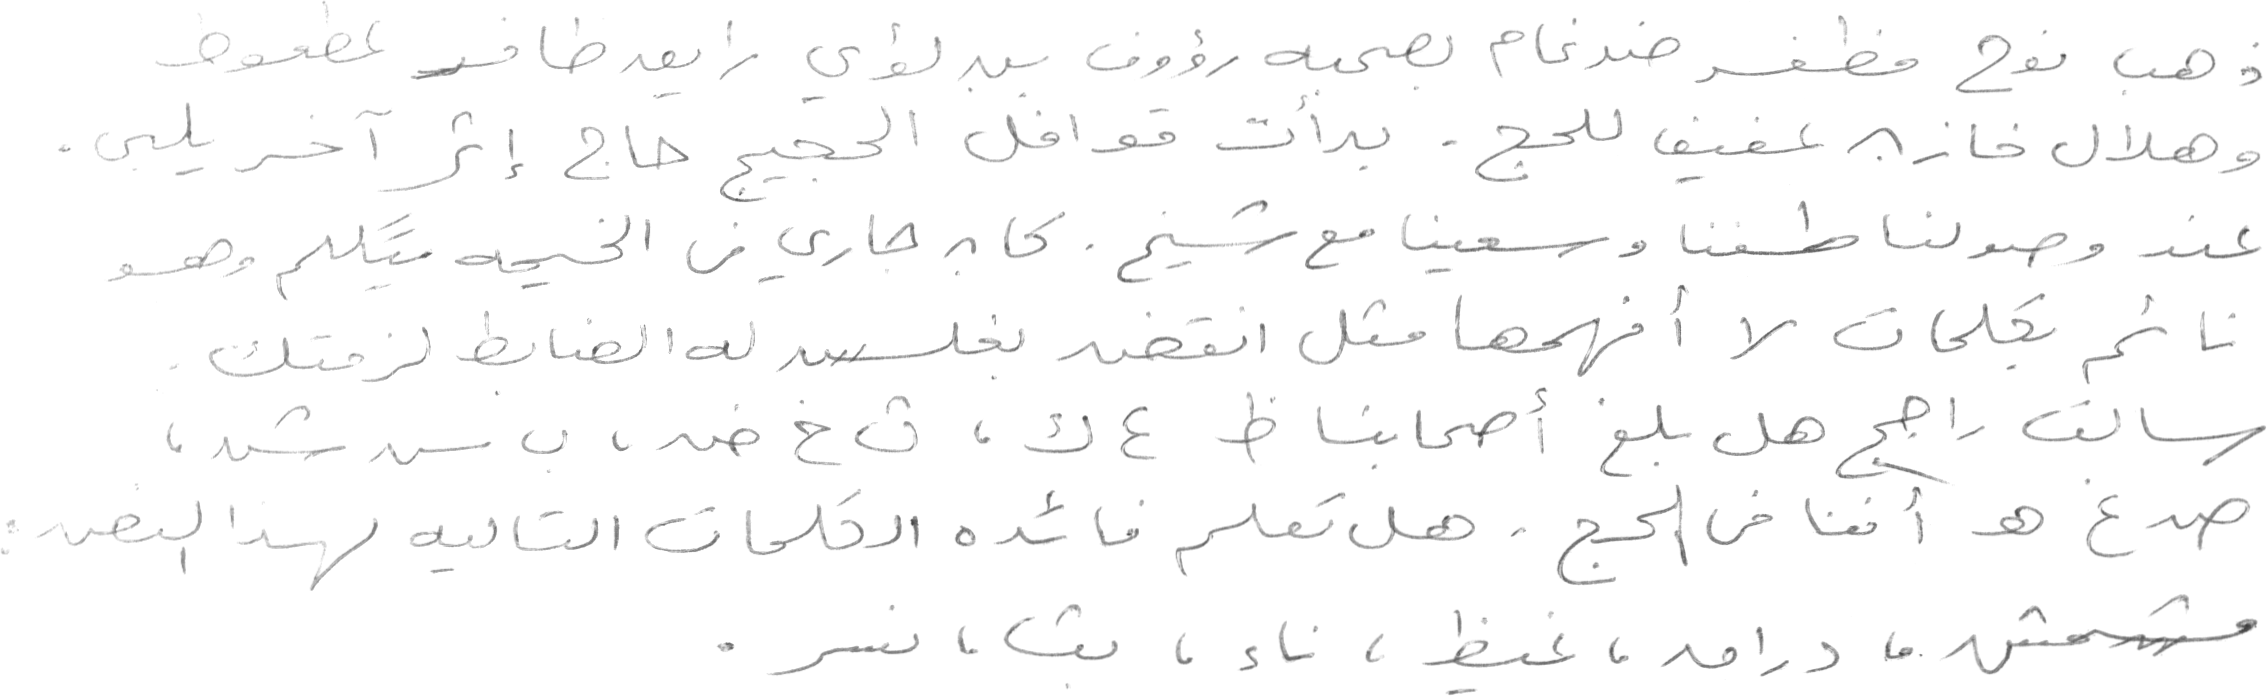 ذهب نوح مظفر ضرغام بصحبه رؤوف بن لؤي رايد ظافر عطعوط
وهلال خازن عفيف للحج . بدأت قوافل الحجيج حاج إثر آخر يلبي .
عند وصولنا طفنا وسعينا مع شيخ . كان جاري في الخيمه يتكلم وهو
نائم بكلمات لا أفهمها مثل انقض بغلس له الضابط لزمتك .
سالت راجح هل بلغ أصحابنا ظ ع ك ، ث خ ض ، ب س ش ،
ص غ هـ أنفنا في الحج . هل تعلم فائده الكلمات التاليه لهذا النص :
مشمش ، درامه ، غيظ ، ناء ، بث ، نسر .